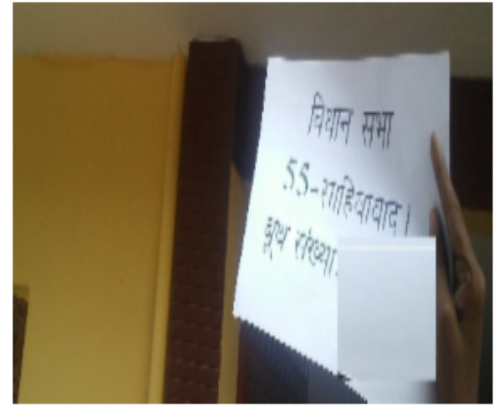 विधान सभा
55-साहिबाबाद।
बूथ संख्या